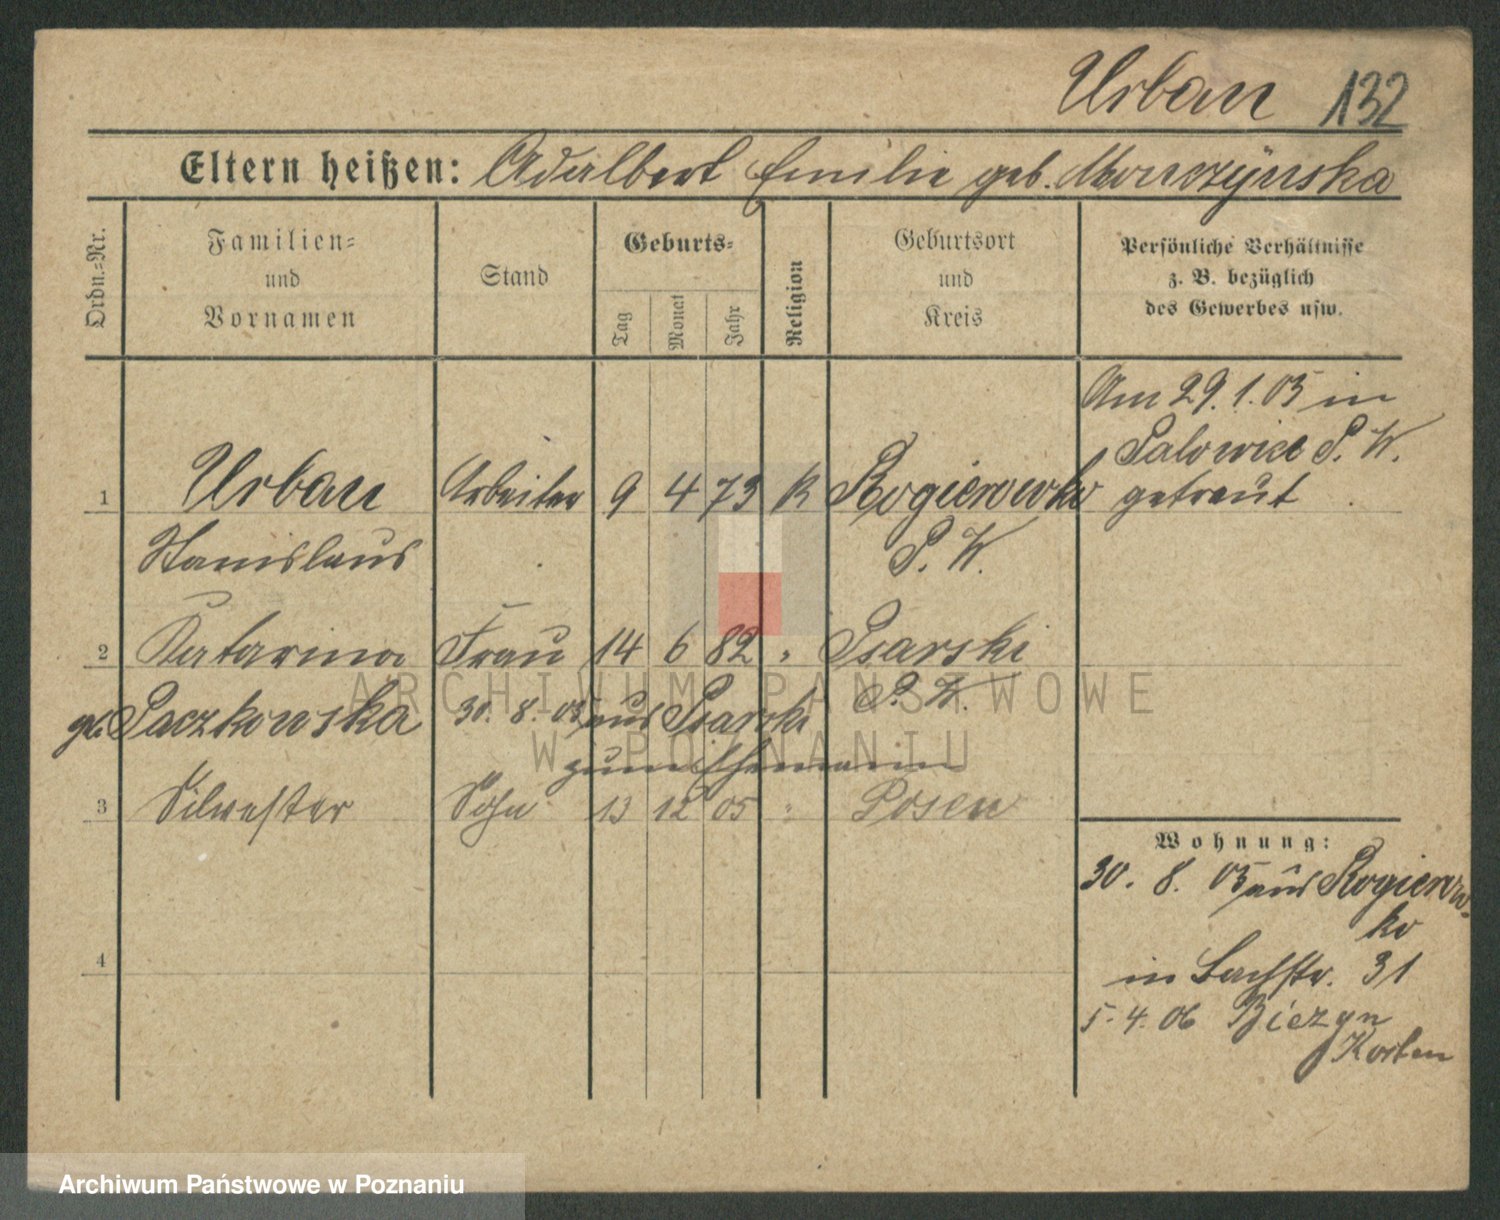 Urban 132
Eltern heißen: Adalbert Emilie geb. Monczynska
Ordn.=Nr.
Familien=
und
Vornamen
Stand
Geburts=
Tag
Monat
Jahr
Religion
Geburtsort
und
Kreis
Persönliche Verhältnisse
z. B. bezüglich
des Gewerbes usw.
Am 29.1.05 in
Palowice P. W.
getraut
1 Urban Arbeiter 9 4 73 K Rogierowko
Stanislaus P. W.
2 Katarina Frau 14 6 82 " Psarski
P. W.
geb. Paczkowska 30. 8. 05 aus Psarski
zum Ehemann
3 Silvester Sohn 13 12 05 " Posen
4
Wohnung:
30. 8. 05 aus Rogierow-
ko
in Bachstr. 31
5. 4. 06 Biezyn
Kosten
ARCHIWUM PAŃSTWOWE
W POZNANIU
Archiwum Państwowe w Poznaniu